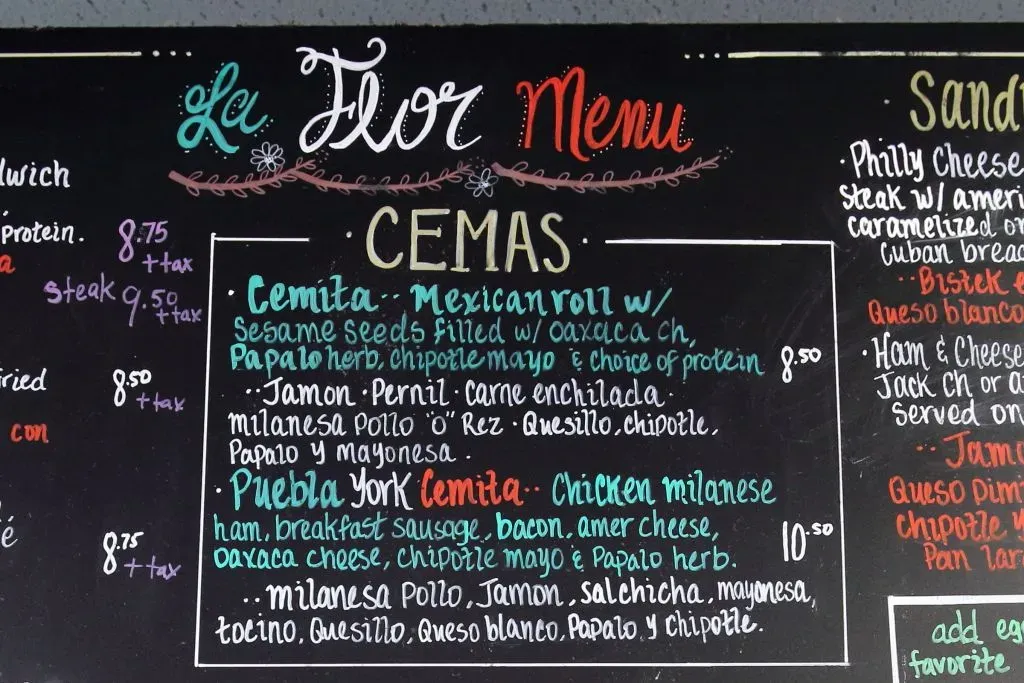 La Flor Menu
protein.
8.75
+ tax
steak 9.50
+tax
8.50
+ tax
con
8.75
+ tax
· CEMAS ·
· Cemita ·· Mexican roll w/
sesame seeds filled w/ oaxaca ch,
Papalo herb, chipotle mayo & choice of protein 8.50
·· Jamon · Pernil · carne enchilada ·
milanesa Pollo "o" Rez · Quesillo, chipotle,
Papalo y mayonesa .
· Puebla York Cemita ·· Chicken milanese
ham, breakfast sausage, bacon, amer cheese,
oaxaca cheese, chipotle mayo & Papalo herb. 10.50
·· milanesa Pollo, Jamon, salchicha, mayonesa,
tocino, Quesillo, Queso blanco, Papalo y chipotle.
· Philly Cheese
steak w/
caramelized
cuban
·· Bistek
Queso blanco
· Ham & Cheese
Jack ch or
served on
Queso
chipotle y
Pan
add
favorite